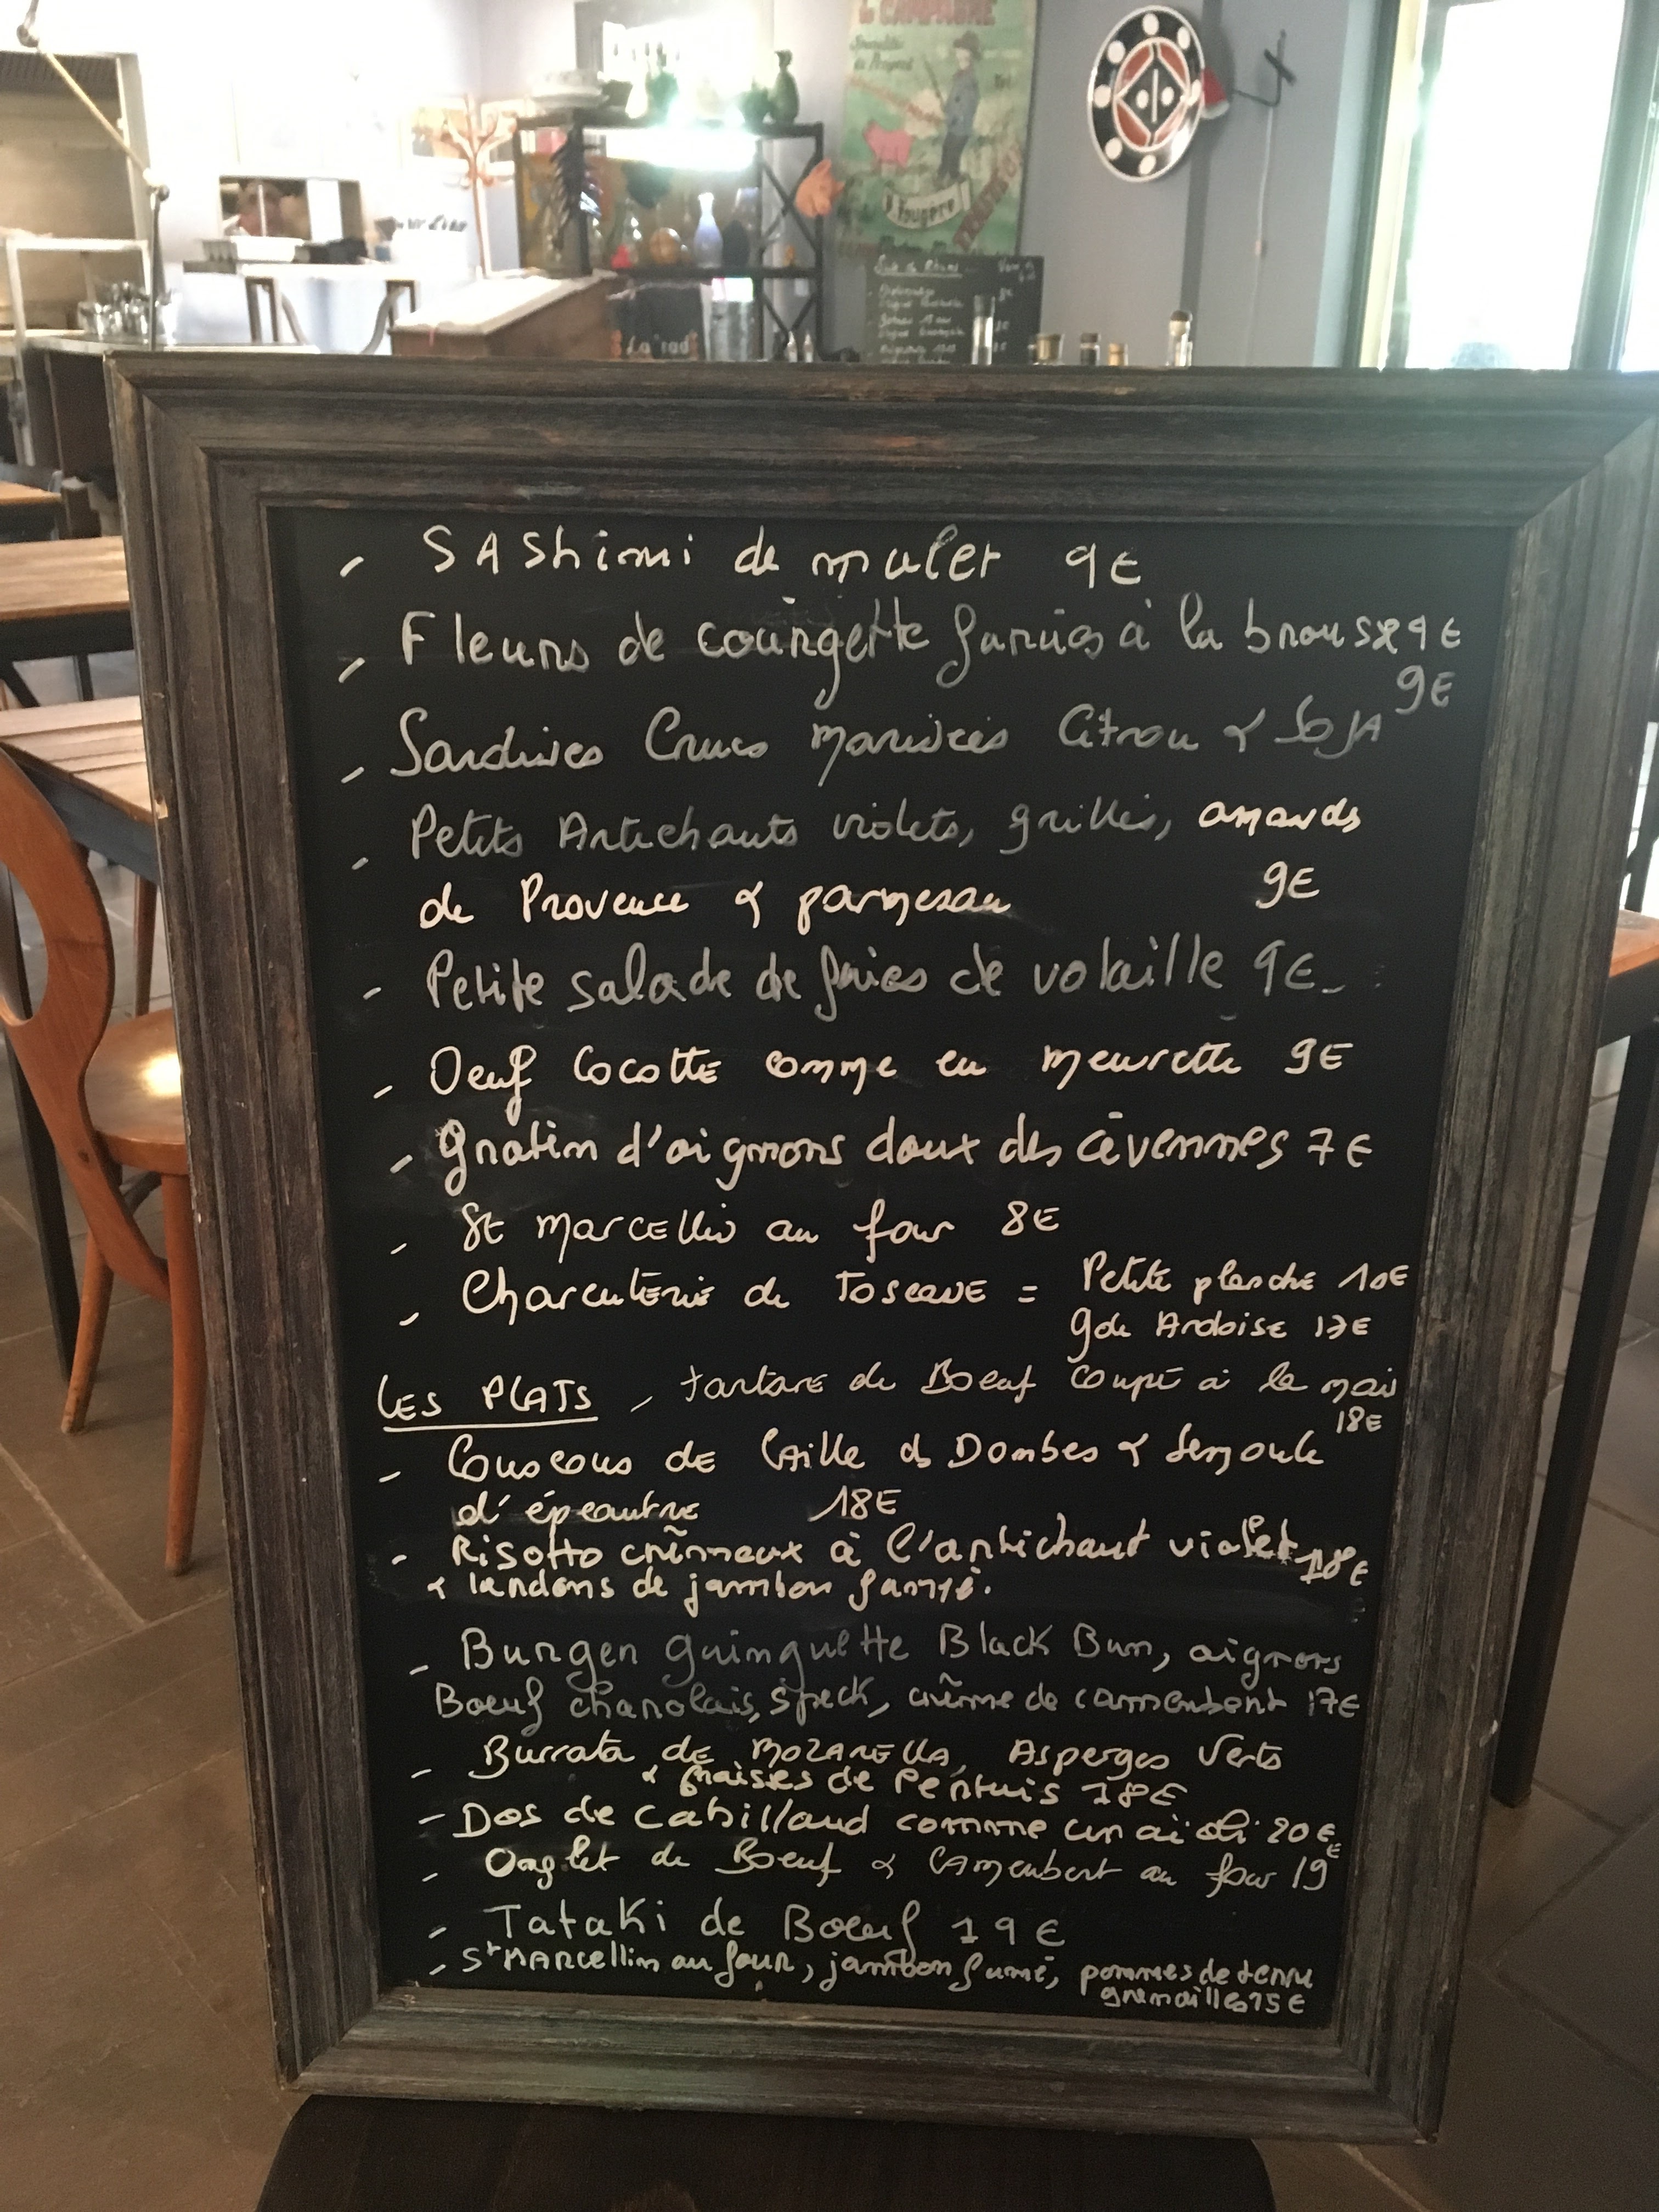 L CAMPAGNE
Fougère
La rad
- SAShimi de mulet 9€
- Fleurs de courgette farcies à la brousse 9€
- Sardines Crues marinées Citron & SOJA 9€
- Petits Artichauts violets, grillés, amands
de Provence & parmesan 9€
- Petite salade de foies de volaille 9€
- Oeuf Cocotte comme en meurette 9€
- gratin d'oignons doux des cévennes 7€
- St Marcellin au four 8€
- Charcuterie de Toscane = Petite planche 10€
gde Ardoise 17€
LES PLATS - tartare de Boeuf coupé à la main
18€
- Couscous de Caille ds Dombes & semoule
d'épeautre 18€
- Risotto crèmeux à l'artichaut violet 18€
& lardons de jambon fumé.
- Burger guinguette Black Bun, oignons
Boeuf charolais, speck, crème de camembert 17€
- Burrata de MOZARELLA, Asperges Verts
& fraises de Pertuis 18€
- Dos de Cabillaud comme un aïoli 20€
- Onglet de Boeuf & Camembert au four 19€
- Tataki de Boeuf 19€
- St MARCellin au four, jambon fumé, pommes de terre
grenailles 15€